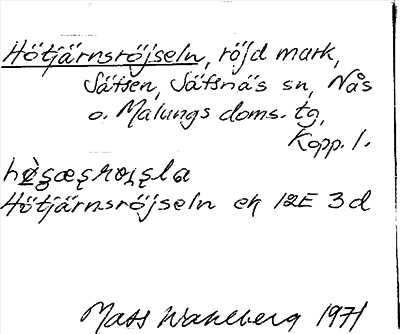 Hötjärnsröjseln, röjd mark,
Sätsen, Säfsnäs sn, Nås
o. Malungs doms. tg,
Kopp. l.
Hötjärnsröjseln ek 12E 3d
Mats Wahlberg 1971